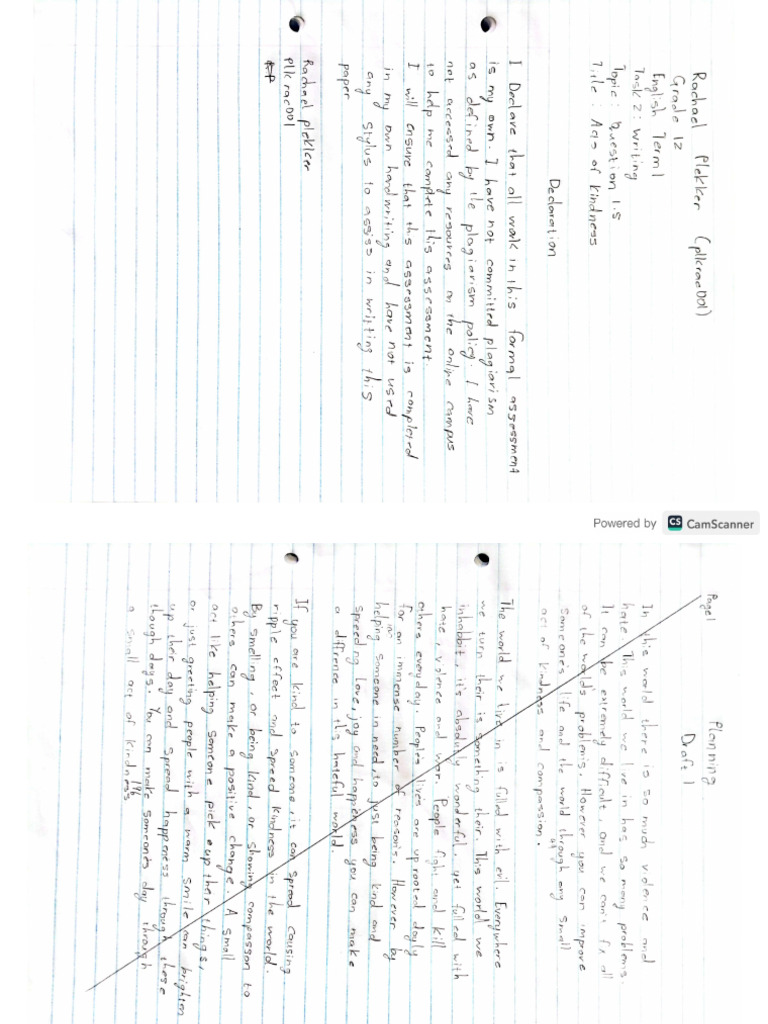 Rachael Plekker (plkrac001)
Grade 12
English Term 1
Task 2: Writing
Topic: Question 1.5
Title: Acts of kindness
Declaration
I Declare that all work in this formal assessment
is my own. I have not committed plagiarism
as defined by the plagiarism policy. I have
not accessed any resources on the online campus
to help me complete this assessment
I will ensure that this assessment is completed
in my own handwriting and have not used
any stylus to assiss in writting this
paper
Rachael plekker
Plkrac001
Powered by CS CamScanner
Page 1
Planning
Draft 1
In this world there is so much violence and
hate. This world we live in has so many problems.
It can be extremly difficult, and we can't fix all
of the world's problems. However you can improve
someone's life and the world through any small
act of kindness and compassion.
The world we live in is fulled with evil. Everywhere
we turn their is something their. This world we
inhabbit, it's absolutly wonderful, yet fulled with
hate, violence and war. People fight and kill
others everyday. Peoples lives are uprooted dayly
for an immense number of reasons. However by
helping someone in need, to just being kind and
spreading love, joy and happieness you can make
a diffrence in this hateful world.
If you are kind to someone, it can spread causing
ripple effect and spread kindness in the world.
By smeling, or being kind, or showing compasson to
others can make a positive change. A small
act like helping someone pick up their things,
or just greeting people with a warm smile can brighten
up their day and spread happeness through these
though days. You can make someones day through
a small act of kindness